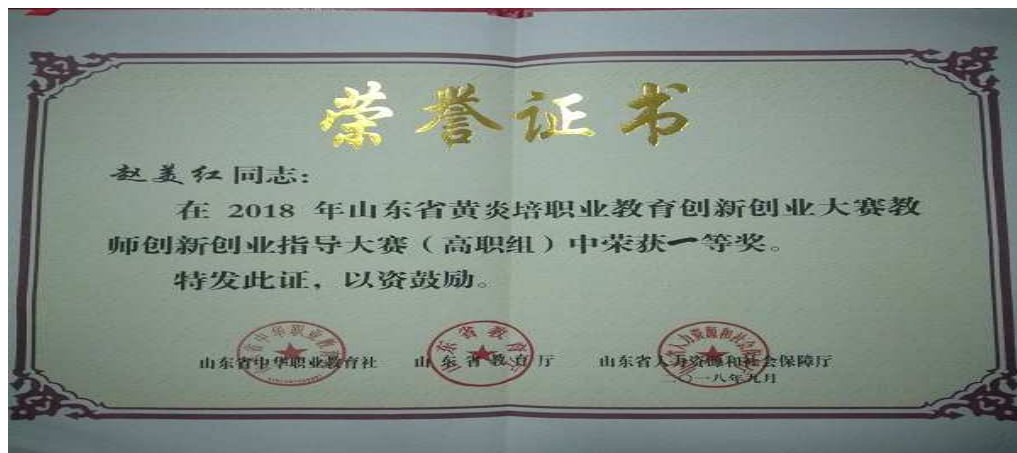 荣誉证书
赵美红同志：
在 2018 年山东省黄炎培职业教育创新创业大赛教
师创新创业指导大赛（高职组）中荣获一等奖。
特发此证，以资鼓励。
山东省中华职业教育社 山东省教育厅 山东省人力资源和社会保障厅
二〇一八年九月